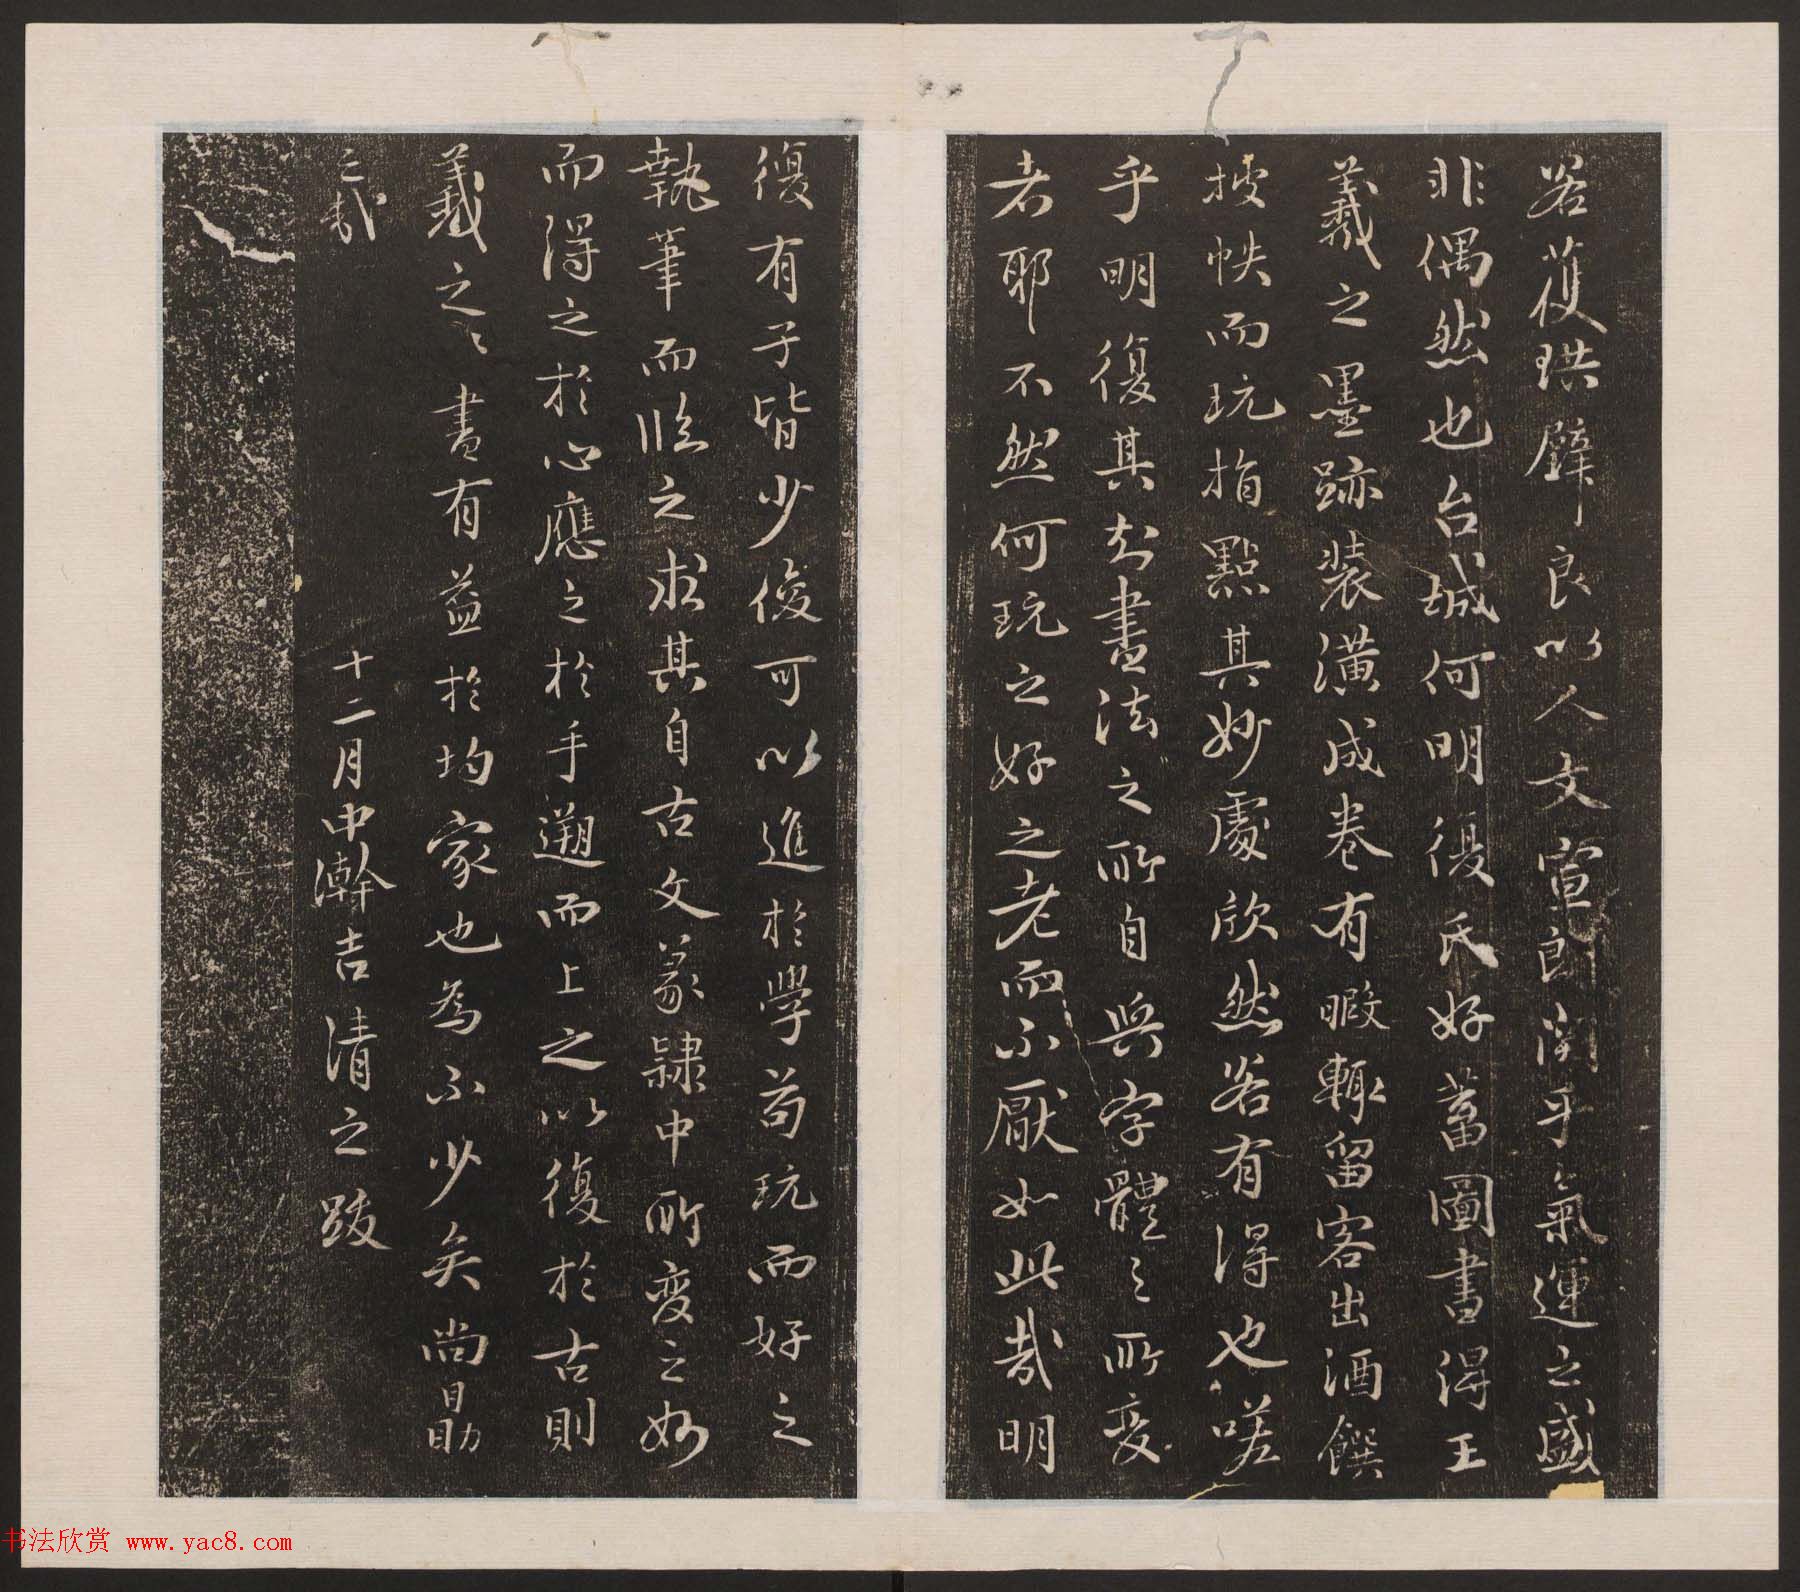 若獲珙璧良以人文宣朗關乎氣運之盛
非偶然也台城何明復氏好蓄圖書得王
羲之墨跡裝潢成卷有暇輒留客出酒饌
披帙而玩指點其妙處欣然若有得也嗟
乎明復其知書法之所自與字體之所變
者耶不然何玩之好之老而不厭如此哉明
復有子皆少俊可以進於學苟玩而好之
執筆而臨之求其自古文篆隸中所變之妙
而得之於心應之於手遡而上之以復於古則
羲之之書有益於均家也為不少矣尚勗
之哉
十二月中澣吉清之跋
书法欣赏 www.yac8.com